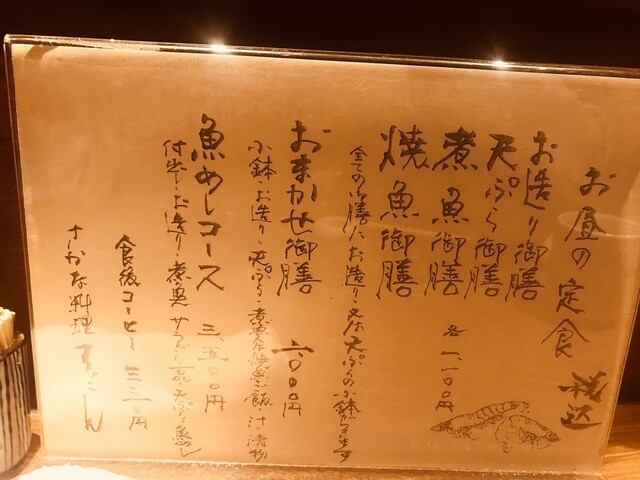 お昼の定食 税込
お造り御膳
天ぷら御膳
煮魚御膳
焼魚御膳
各一、一〇〇円
全ての御膳にお造り・又は天ぷらの小鉢が
おまかせ御膳
小鉢・お造り・天ぷら・煮魚又は焼魚・ご飯・汁・漬物
魚めしコース 三、五〇〇円
付出し・お造り・煮魚 サラダ 一品 天ぷら
食後コーヒー
さかな料理